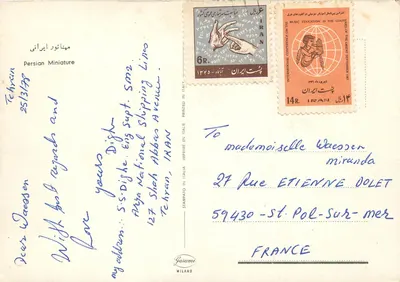 مینیاتور ایرانی
Persian Miniature
Tehran
25/3/78
Dear Waessen
With best regards and
Love yours Digh
my address: S.S. Dighe Eng Supt. SMZ
Arya National Shipping Lines
127 Shah Abbas Avenue
Tehran, IRAN
6R.
IRAN
پست ایران
14 R.
IRAN
۱۴ ریال
پست ایران
To
mademoiselle Waessen
miranda
27 Rue ETIENNE DOLET
59430-St. Pol-Sur-mer
FRANCE
MILANO